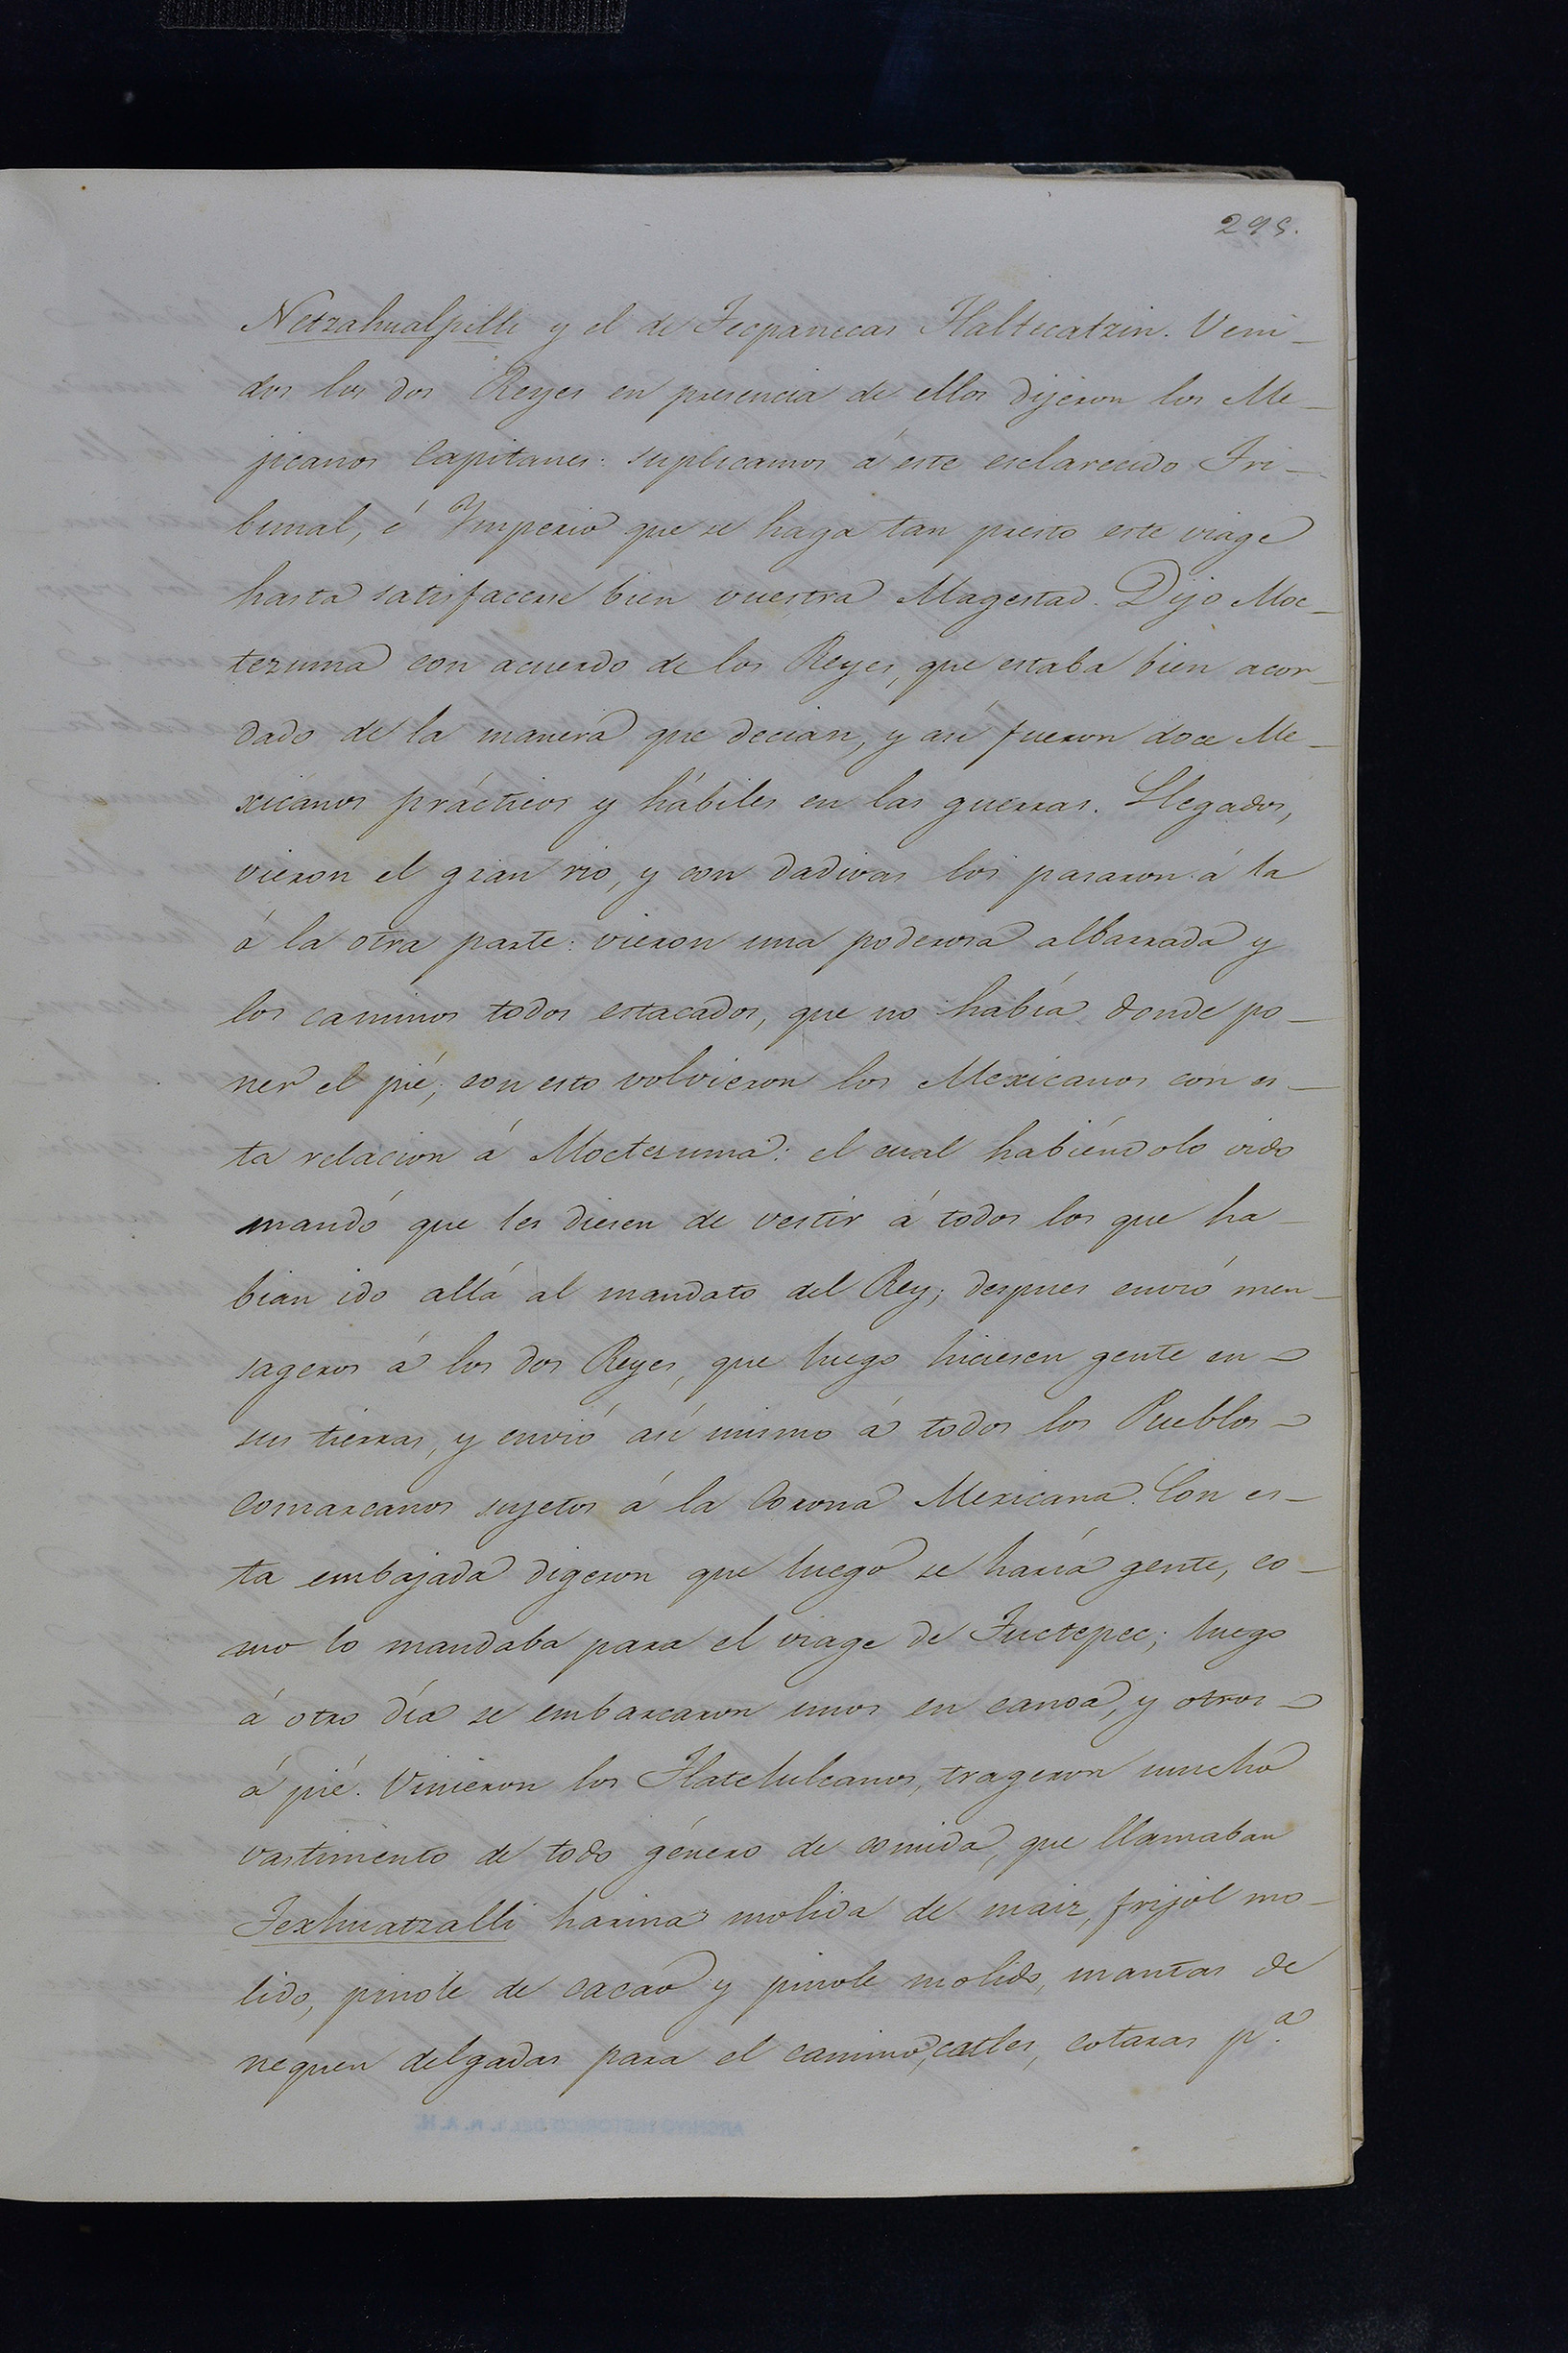 295.
Netzahualpilli y el de Tecpanecas Tlaltecatzin. Veni-
dos los dos Reyes en presencia de ellos dijeron los Me-
jicanos Capitanes: suplicamos á este esclarecido Tri-
bunal, é Ymperio que se haga tan presto este viage
hasta satisfacerse bien vuestra Magestad. Dijo Moc-
tezuma con acuerdo de los Reyes, que estaba bien acor-
dado de la manera que decian, y asi fueron doce Me-
xicanos prácticos y hábiles en las guerras. Llegados,
vieron el gran rio, y con dadivas los pasaron á la
á la otra parte: vieron una poderosa albarrada y
los caminos todos estacados, que no había donde po-
ner el pié; con esto volvieron los Mexicanos con es-
ta relacion á Moctezuma: el cual habiéndolo oido
mandó que les diesen de vestir á todos los que ha-
bian ido allá al mandato del Rey; despues envió men-
sageros á los dos Reyes, que luego hiciesen gente en
sus tierras, y envió asi mismo á todos los Pueblos
Comarcanos sujetos á la Corona Mexicana. Con es-
ta embajada digeron que luego se haría gente, co-
mo lo mandaba para el viage de Tuctepec; luego
á otro día se embarcaron unos en canoa, y otros
á pié. Vinieron los Tlatelulcanos, trageron mucho
vastimento de todo género de comida, que llamaban
Texhuatzalli harina molida de maiz, frijol mo-
lido, pinole de cacao y pinole molido, mantas de
nequen delgadas para el camino, catles, cotaras p.ª
ARCHIVO HISTORICO DEL I. N. A. H.